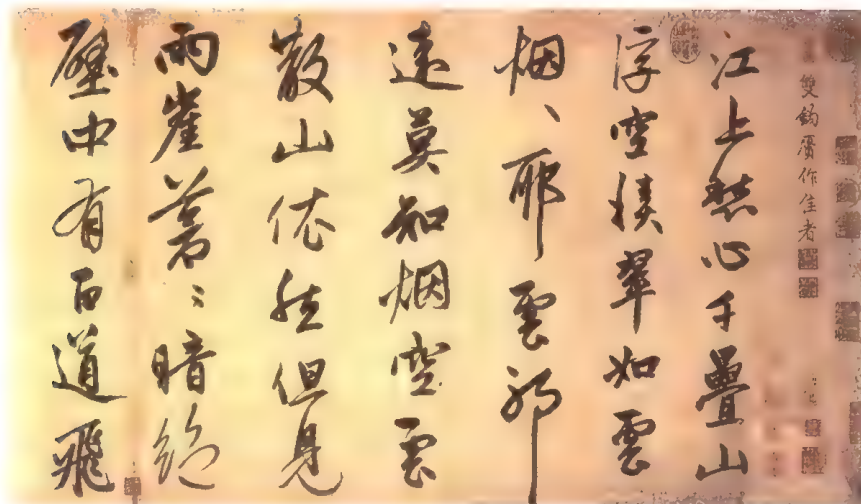 雙鈎贋作佳者
江上愁心千疊山
浮空積翠如雲
烟、耶雲耶
遠莫知烟空雲
散山依然但見
兩崖蒼〻暗絕
壁中有百道飛